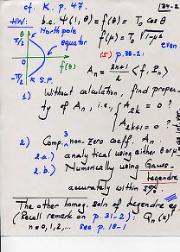 cf. K. p. 47.
134-2
HW: b.c. Ψ(1, θ) = f(θ) = T₀ cos θ
North pole
f(μ) = T₀ √1-μ²
π/2
equator
even
(5) p. 38-2:
f(θ)
-π/2 S.P.
Aₙ = 2n+1/2 <f, Pₙ>
1) Without calculation, find property
of Aₙ, i.e., { A₂ₖ = 0 ?
A₂ₖ₊₁ = 0 ?
2) Comp. non-zero coeff. Aₙ
2.a) analytical using either θ or μ
2.b) Numerically using Gauss-
Legendre
accurately within 5%.
The other homog. soln of Legendre eq
(Recall remark on p. 31-2): Qₙ(x)
n = 0, 1, 2, ... see p. 18-1